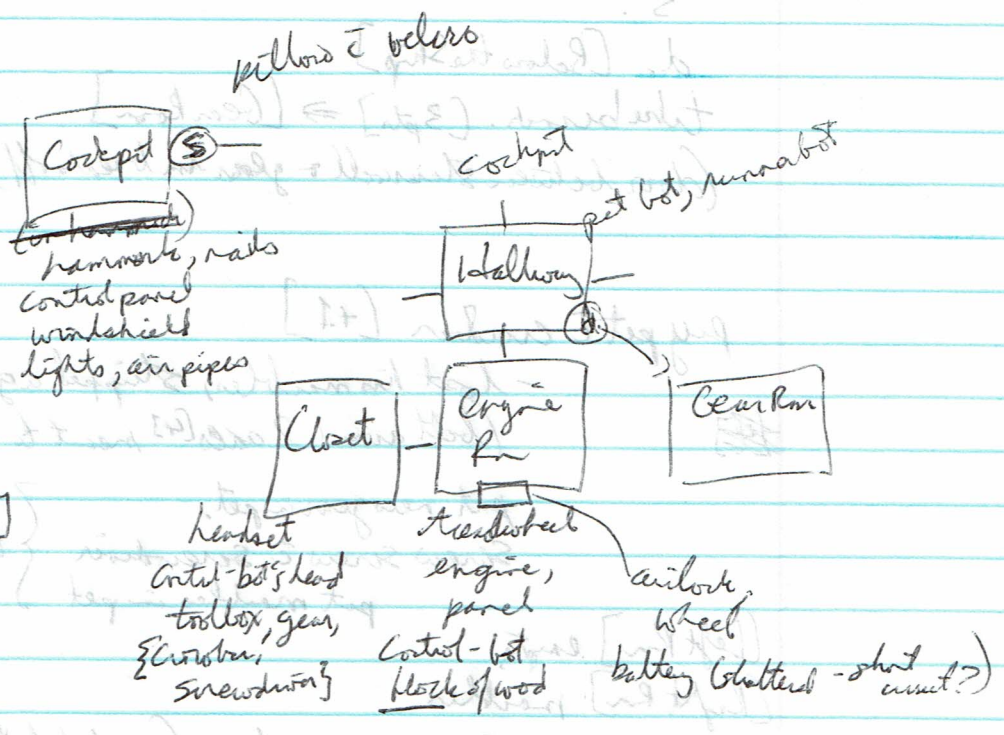 pillow c̄ velcro
Cockpit S
hammock, nails
control panel
windshield
lights, air pipes
cockpit
pet bot, runnabot
Hallway
d
Closet
engine
Rm
Gear Rm
headset
Control-bot's head
toolbox, gear,
{Crowbar,
screwdriver}
treadwheel
engine,
panel
Control-bot
block of wood
airlock,
wheel
battery (shattered - short
circuit?)